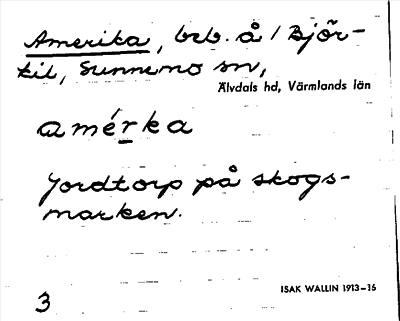 Amerika, beb. å 1 Björ-
kil, Sunnemo sn,
Älvdals hd, Värmlands län
amérka
Jordtorp på skogs-
marken.
ISAK WALLIN 1913-16
3